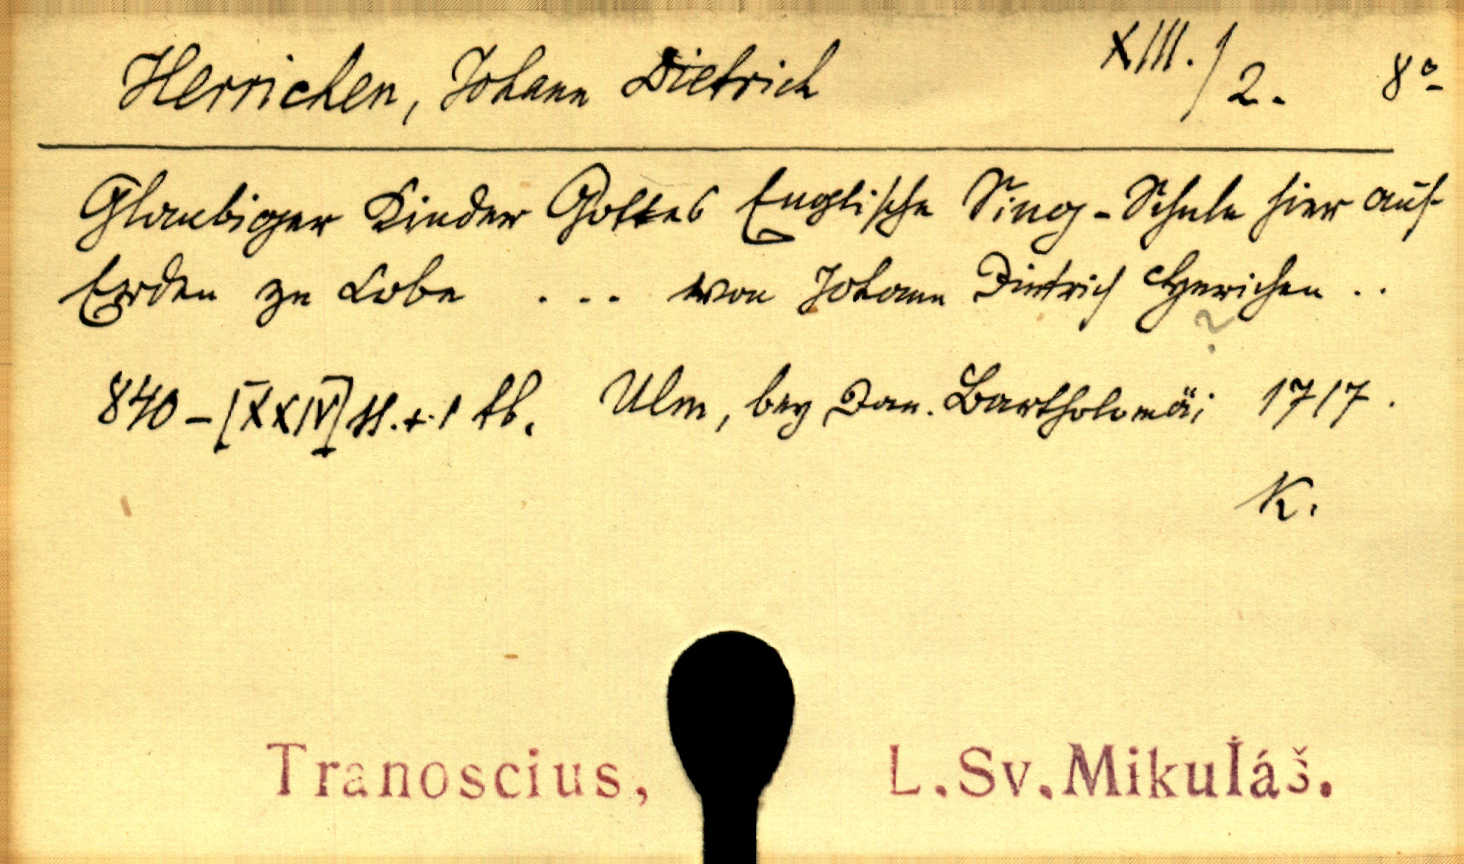 Herrichen, Johann Dietrich XIII./2. 8°
Glaubiger Kinder Gottes Englische Sing-Schule hier auf
Erden zu Lobe ... von Johann Dietrich Herrichen ..
?
840-[XXIV] S. + 1 tb. Ulm, bey Dan. Bartholomäi 1717.
K.
Tranoscius, L.Sv.Mikuláš.